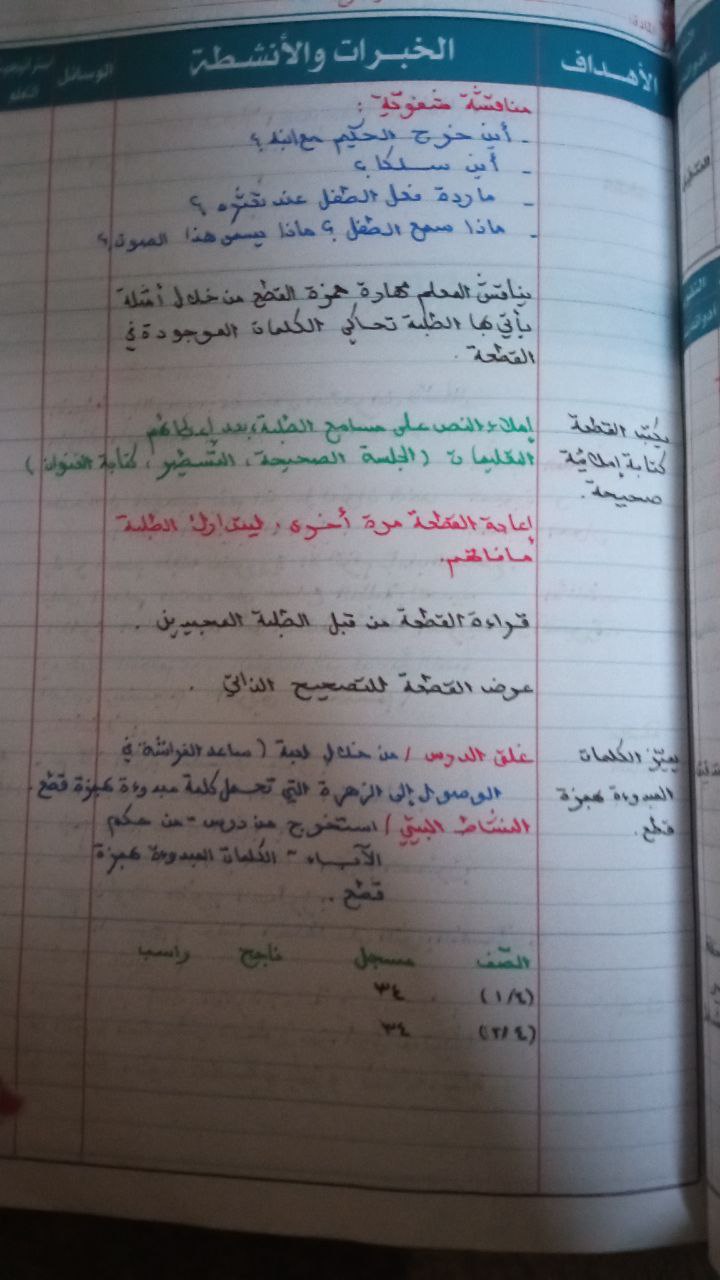 الأهداف
الخبرات والأنشطة
الوسائل
مناقشة شفوية :
- أين خرج الحكيم مع ابنه ؟
- أين سلكا ؟
- ماردة فعل الطفل عند تعثره ؟
- ماذا سمع الطفل ؟ ماذا يسمى هذا الصوت ؟
يناقش المعلم مهارة همزة القطع من خلال أمثلة
يأتي بها الطلبة تحاكي الكلمات الموجودة في
القطعة .
يكتب القطعة
كتابة إملائية
صحيحة .
إملاء النص على مسامع الطلبة، بعد إعطائهم
التعليمات ( الجلسة الصحيحة، التسطير، كتابة العنوان )
إعادة القطعة مرة أخرى، ليتدارك الطلبة
مافاتهم.
قراءة القطعة من قبل الطلبة المجيدين .
عرض القطعة للتصحيح الذاتي .
يميّز الكلمات
المبدوءة بهمزة
قطع .
غلق الدرس / من خلال لعبة ( ساعد الفراشة في
الوصول إلى الزهرة التي تحمل كلمة مبدوءة بهمزة قطع .
النشاط البيتي / استخرج من درس - من حكم
الآباء - الكلمات المبدوءة بهمزة
قطع .
الصّف مسجل ناجح راسب
(١/٤) ٣٤
(٢/٤) ٣٤